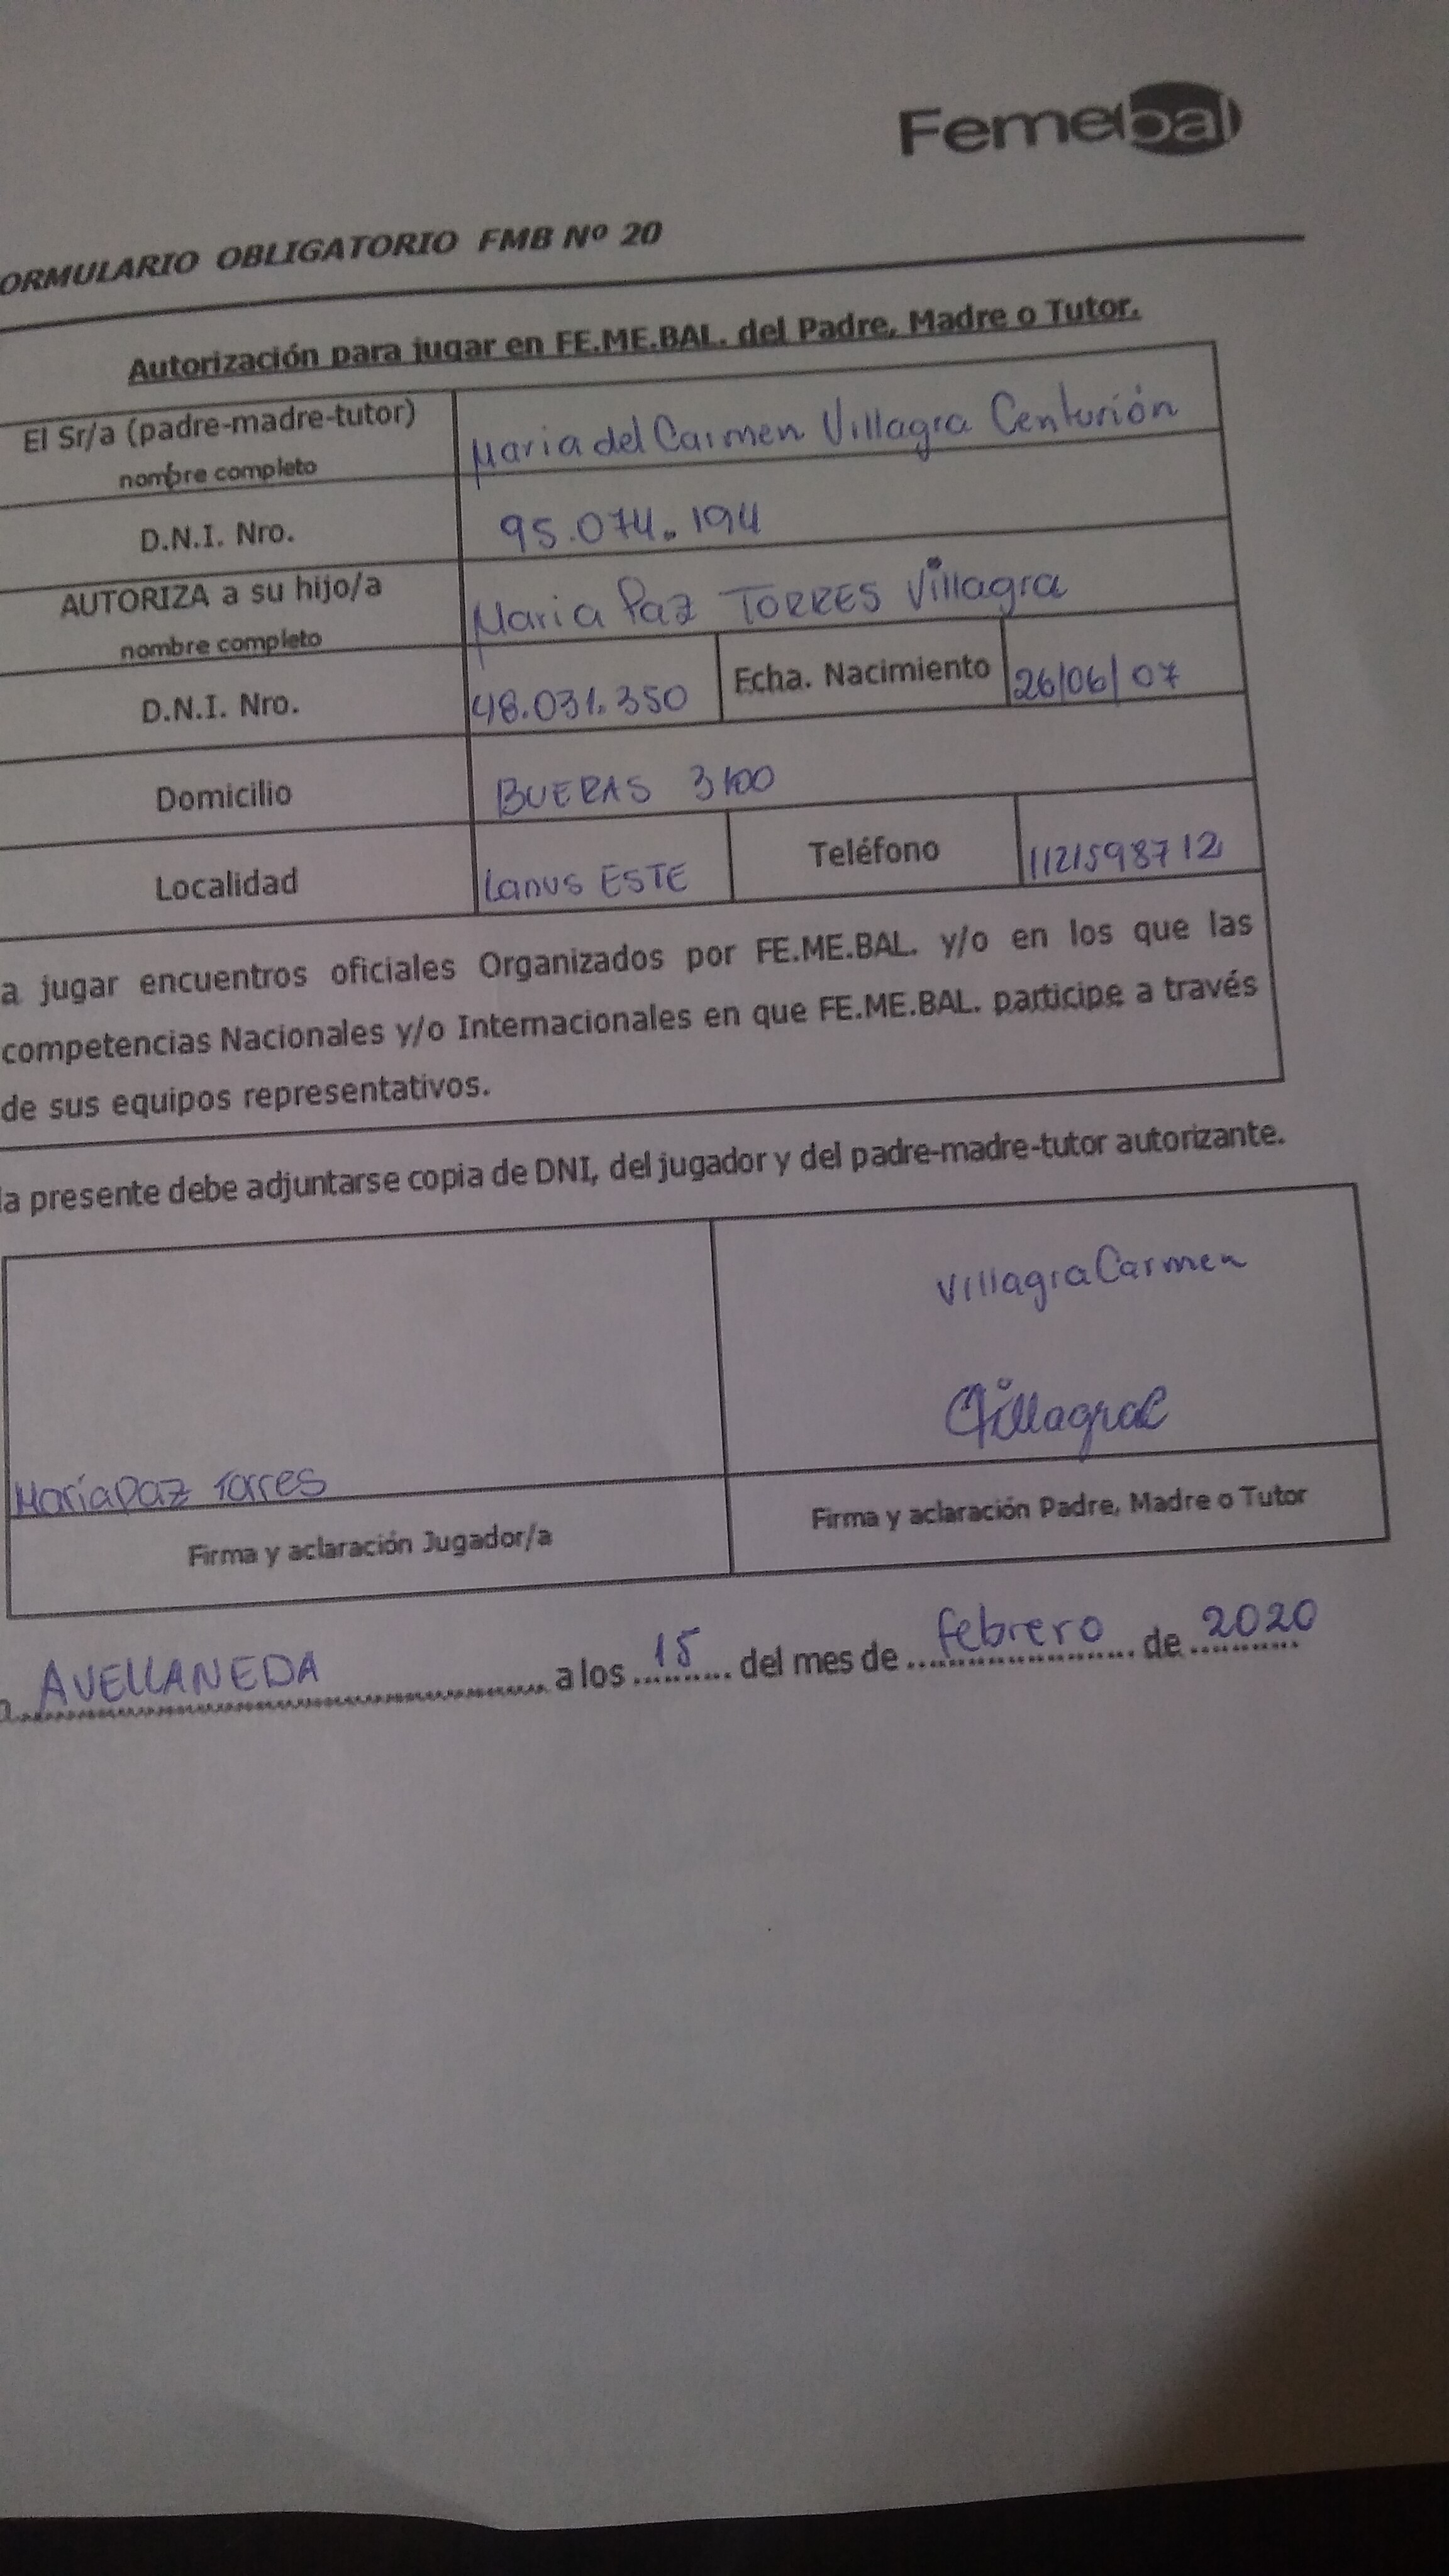 Femebal
ORMULARIO OBLIGATORIO FMB Nº 20
Autorización para jugar en FE.ME.BAL. del Padre, Madre o Tutor.
El Sr/a (padre-madre-tutor) Maria del Carmen Villagra Centurión
nombre completo
D.N.I. Nro. 95.074.194
AUTORIZA a su hijo/a Maria Paz TORRES Villagra
nombre completo
D.N.I. Nro. 48.031.350 Echa. Nacimiento 26/06/07
Domicilio BUERAS 3100
Localidad Lanus ESTE Teléfono 1121598712
a jugar encuentros oficiales Organizados por FE.ME.BAL. y/o en los que las
competencias Nacionales y/o Internacionales en que FE.ME.BAL. participe a través
de sus equipos representativos.
la presente debe adjuntarse copia de DNI, del jugador y del padre-madre-tutor autorizante.
Villagra Carmen
Villagra C
María Paz Torres
Firma y aclaración Jugador/a Firma y aclaración Padre, Madre o Tutor
AVELLANEDA a los 15 del mes de febrero de 2020